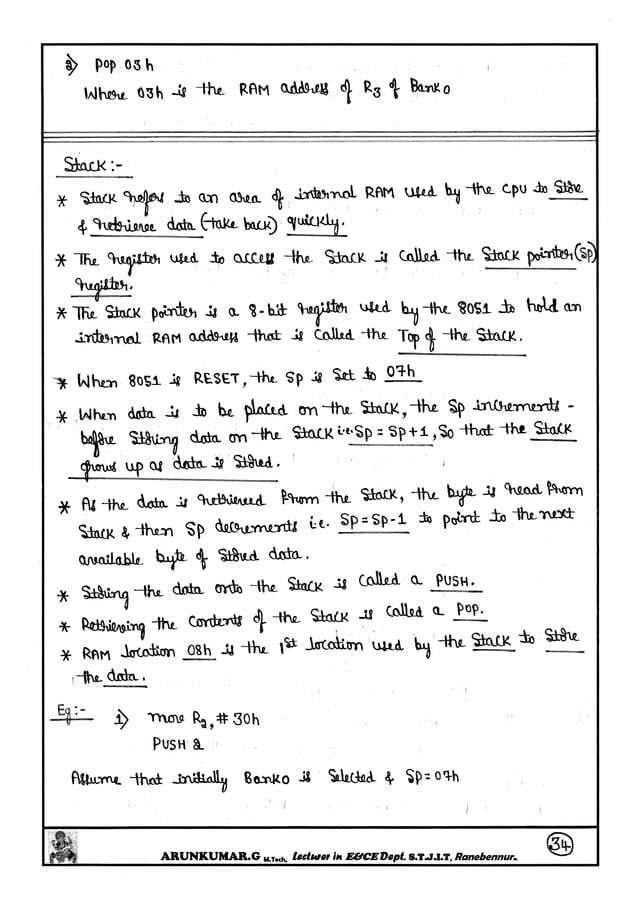 2) POP 03h
Where 03h is the RAM address of R3 of Bank0
Stack :-
* Stack refers to an area of internal RAM used by the CPU to Store
& retrieve data (take back) quickly.
* The register used to access the Stack is called the Stack pointer (SP)
register.
* The Stack pointer is a 8-bit register used by the 8051 to hold an
internal RAM address that is called the Top of the Stack.
* When 8051 is RESET, the SP is Set to 07h
* When data is to be placed on the Stack, the SP increments -
before Storing data on the Stack i.e. SP = SP+1, So that the Stack
grows up as data is Stored.
* As the data is retrieved from the Stack, the byte is read from
Stack & then SP decrements i.e. SP=SP-1 to point to the next
available byte of Stored data.
* Storing the data onto the Stack is called a PUSH.
* Retrieving the contents of the Stack is called a POP.
* RAM location 08h is the 1st location used by the Stack to Store
the data.
Eg:- 1) mov R2, #30h
PUSH 2
Assume that initially Bank0 is Selected & SP=07h
34
ARUNKUMAR.G M.Tech, Lecturer in E&CE Dept. S.T.J.I.T, Ranebennur.